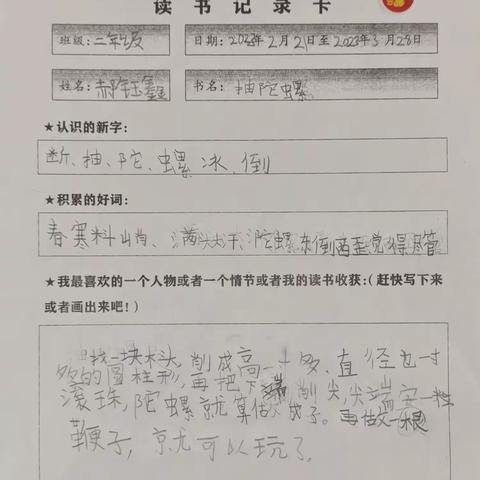 读书记录卡
班级：二年级
日期：2023年2月2日至2023年3月28日
姓名：郝钰鑫
书名：抽陀螺
★认识的新字：
断、抽、陀、螺、冰、倒
★积累的好词：
春寒料峭、满头大汗、陀螺东倒西歪觉得尽管
★我最喜欢的一个人物或者一个情节或者我的读书收获：(赶快写下来
或者画出来吧！)
找一块木头，削成高一寸多，直径也一寸
多的圆柱形，再把下端削尖，尖端安一粒
滚珠，陀螺就算做成了。再做一根
鞭子，就可以玩了。